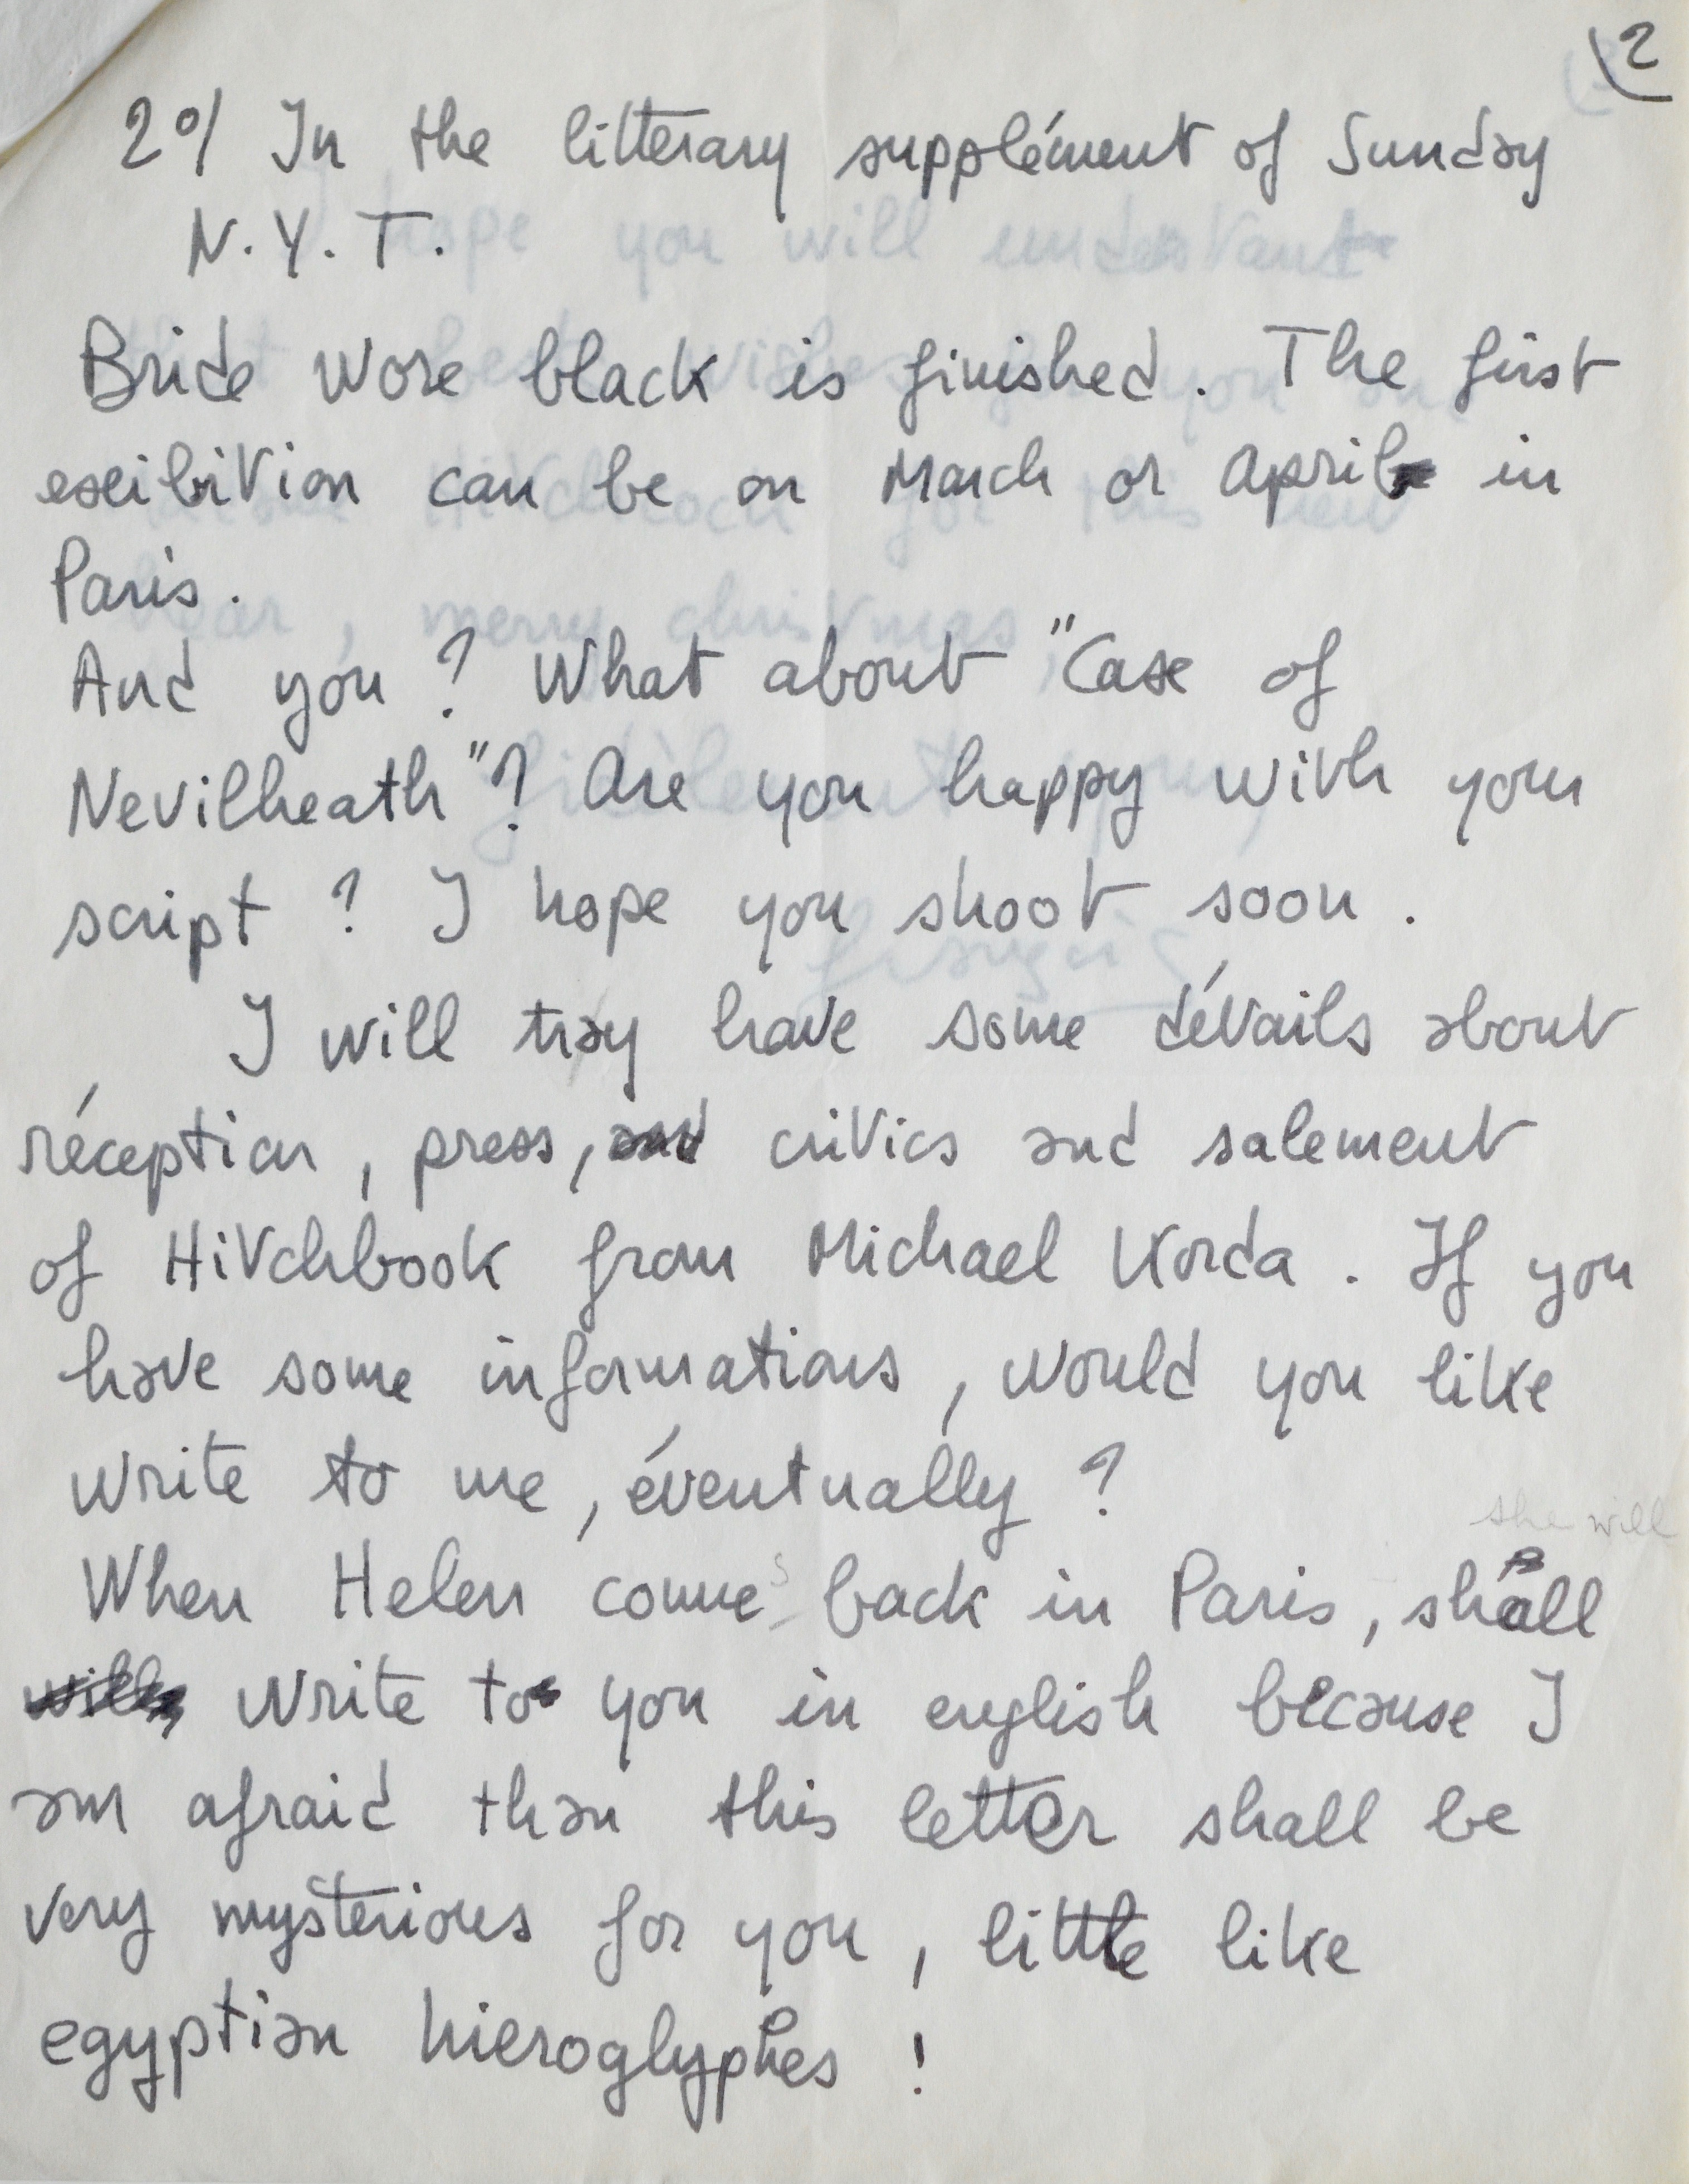 2
2°/ In the litterary supplément of Sunday
N.Y.T.
Bride Wore black is finished. The first
exibition can be on March or April in
Paris.
And you? What about "Case of
Nevilheath"? Are you happy with your
script? I hope you shoot soon.
I will try have some détails about
réception, press, and critics and salement
of Hitchbook from Michael Korda. If you
have some informations, would you like
write to me, éventually?
she will
When Helen comes back in Paris, shall
will write to you in english because I
am afraid than this letter shall be
very mysterious for you, little like
egyptian hieroglyphes!